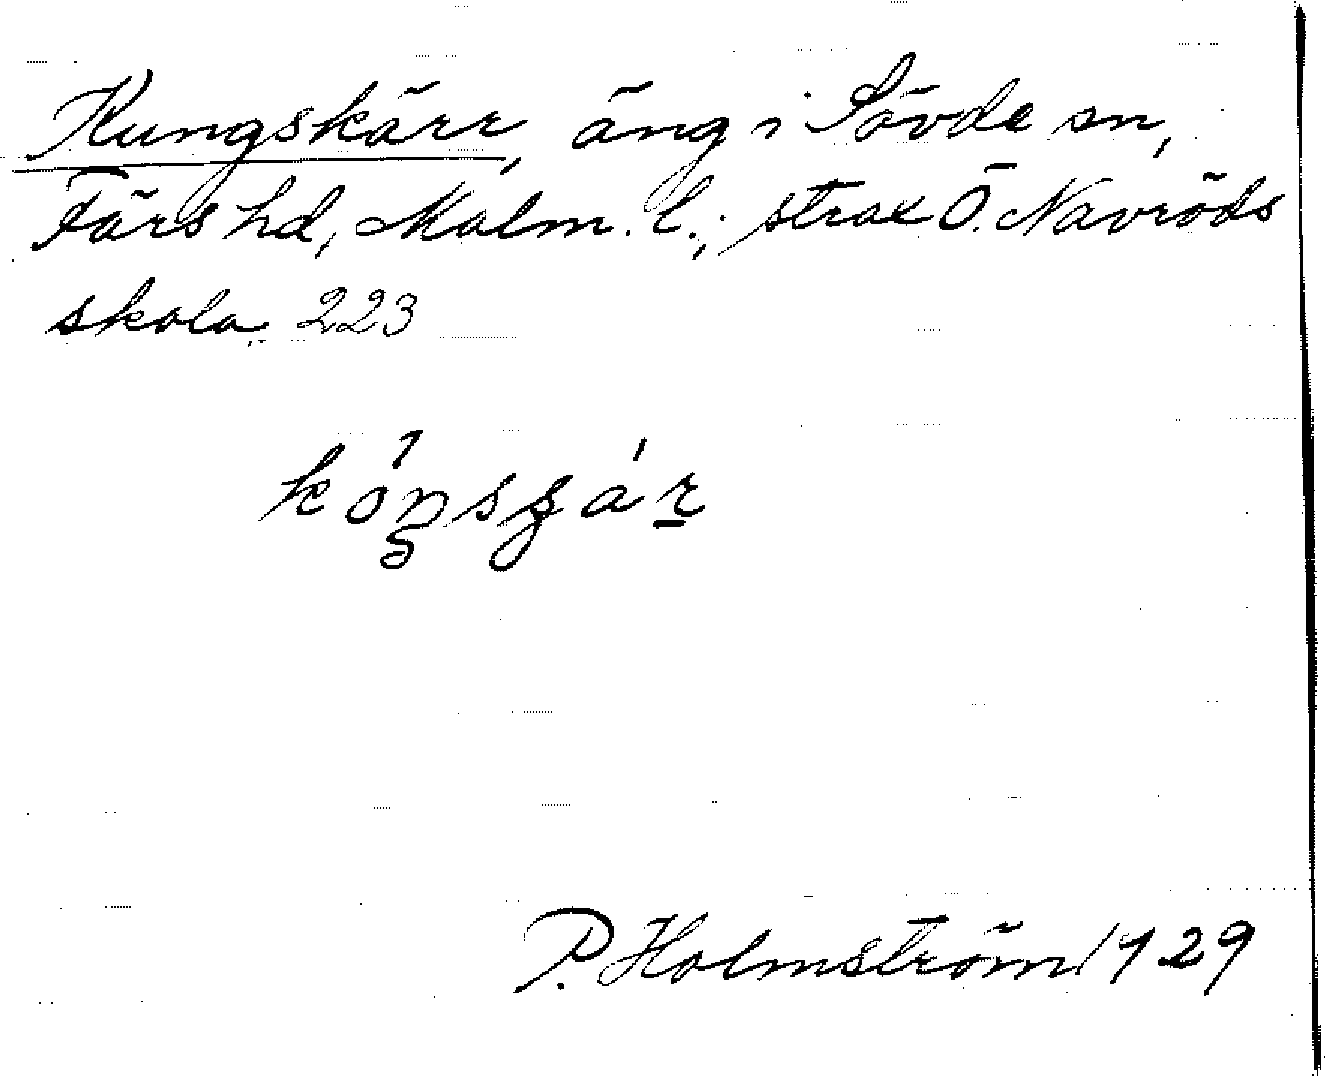 Kungskärr, äng i Sövde sn,
Färs hd, Malm. l.; strax Ö. Navröds
skola. 223
P. Holmström 1929